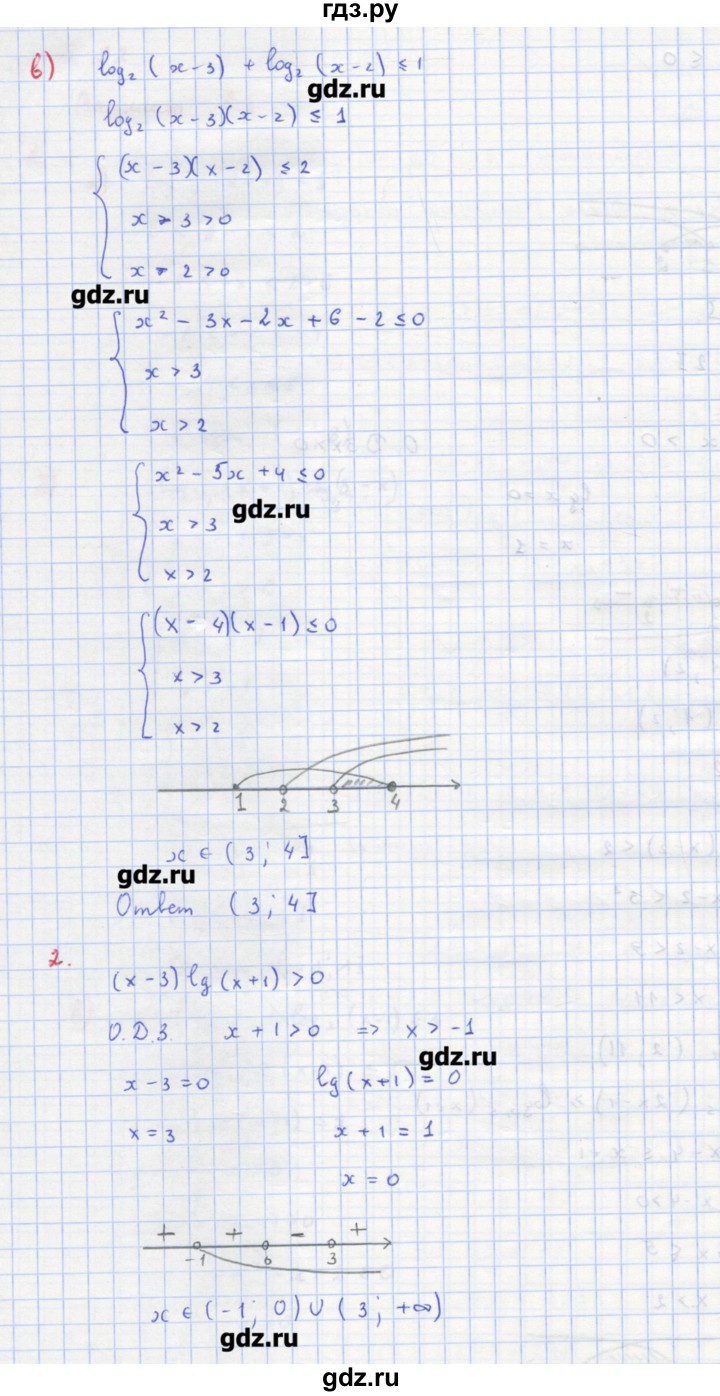 гдз.ру
в) log₂ (x-3) + log₂ (x-2) ≤ 1
gdz.ru
log₂ (x-3)(x-2) ≤ 1
(x-3)(x-2) ≤ 2
x-3 > 0
x-2 > 0
gdz.ru
x² - 3x - 2x + 6 - 2 ≤ 0
x > 3
x > 2
x² - 5x + 4 ≤ 0
gdz.ru
x > 3
x > 2
(x-4)(x-1) ≤ 0
x > 3
x > 2
1 2 3 4
x ∈ (3; 4]
gdz.ru
Ответ (3; 4]
2.
(x-3) lg (x+1) > 0
О.Д.З. x + 1 > 0 => x > -1
gdz.ru
x - 3 = 0 lg (x+1) = 0
x = 3 x + 1 = 1
x = 0
+ + - +
-1 0 3
x ∈ (-1; 0) ∪ (3; +∞)
gdz.ru
gdz.ru